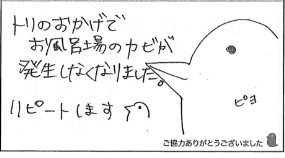 トリのおかげで
お風呂場のカビが
発生しなくなりました。
リピートします
ピヨ
ご協力ありがとうございました